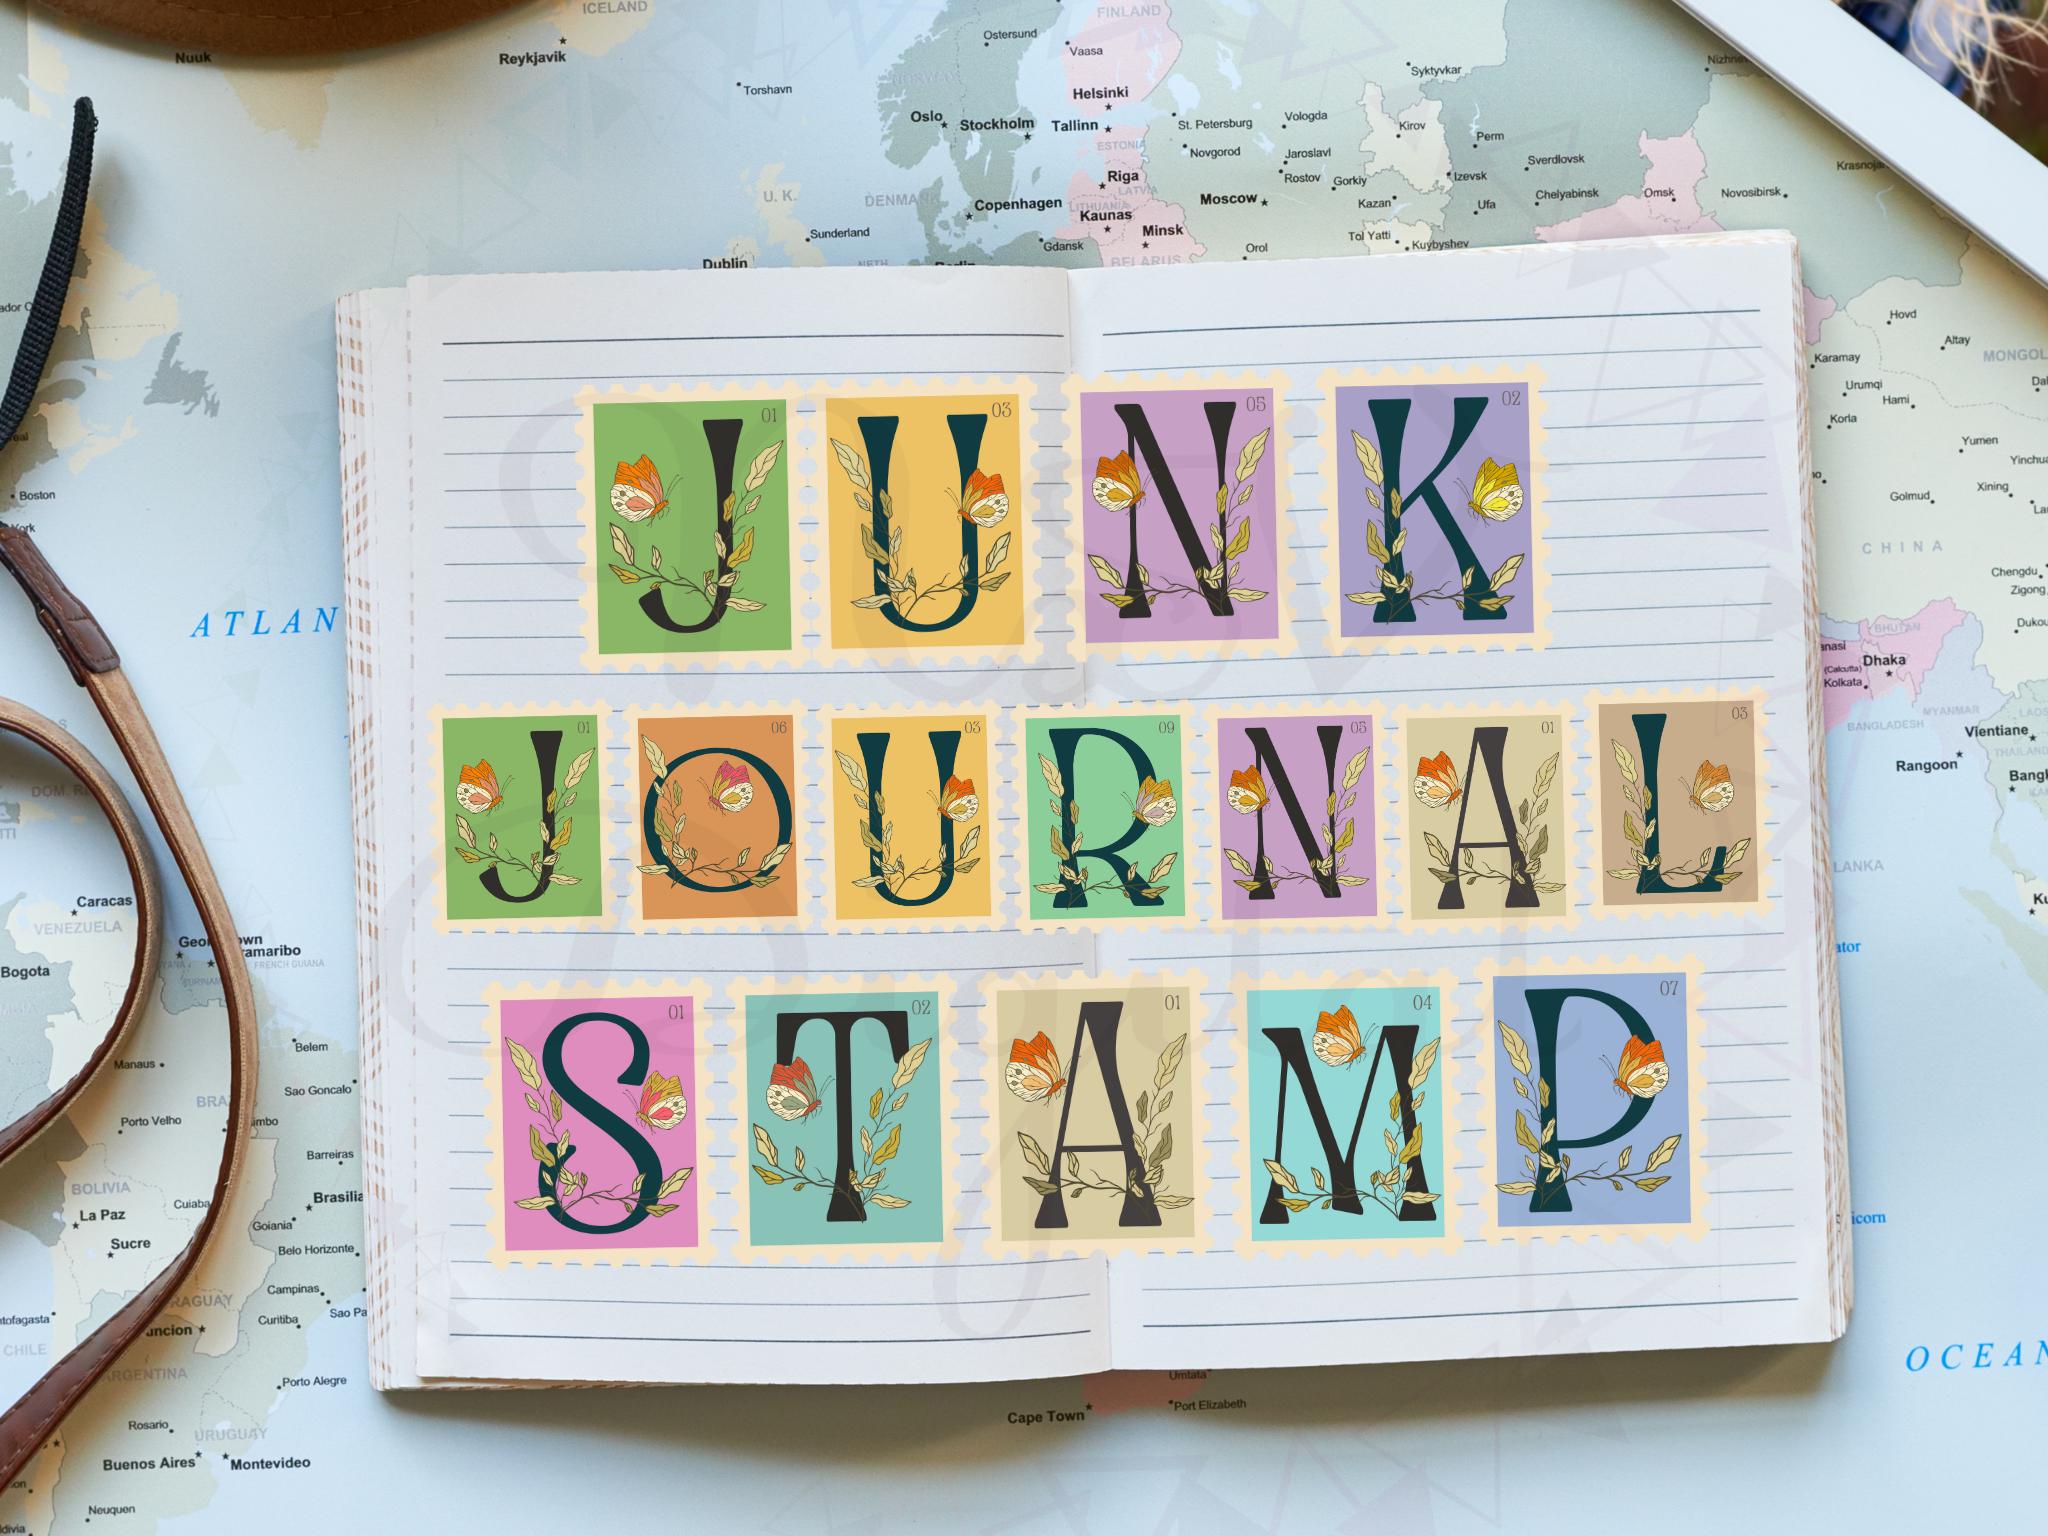 ICELAND
Nuuk
Reykjavik
Torshavn
Ostersund
FINLAND
Vaasa
NORWAY
Helsinki
Oslo
Stockholm
Tallinn
ESTONIA
St. Petersburg
Vologda
Syktyvkar
Kirov
Perm
Novgorod
Jaroslavl
Sverdlovsk
Riga
LATVIA
Rostov
Gorkiy
Izevsk
Chelyabinsk
Omsk
Novosibirsk
U. K.
DENMARK
Copenhagen
LITHUANIA
Kaunas
Moscow
Kazan
Ufa
Sunderland
Gdansk
Minsk
Orol
Tol Yatti
Kuybyshev
Dublin
NETH
Berlin
BELARUS
Hovd
Altay
Karamay
Urumqi
Hami
Korla
Yumen
Golmud
Xining
Boston
CHINA
Chengdu
Zigong
BHUTAN
Dhaka
(Calcutta)
Kolkata
BANGLADESH
MYANMAR
Vientiane
Rangoon
LANKA
J 01 U 03 N 05 K 02
J 01 O 06 U 03 R 09 N 05 A 01 L 03
S 01 T 02 A 01 M 04 P 07
Caracas
VENEZUELA
Bogota
FRENCH GUIANA
Belem
Manaus
Sao Goncalo
Porto Velho
Barreiras
BOLIVIA
La Paz
Cuiaba
Brasilia
Goiania
Sucre
Belo Horizonte
Campinas
Curitiba
CHILE
ARGENTINA
Porto Alegre
Rosario
URUGUAY
Buenos Aires
Montevideo
Neuquen
Umtata
Cape Town
Port Elizabeth